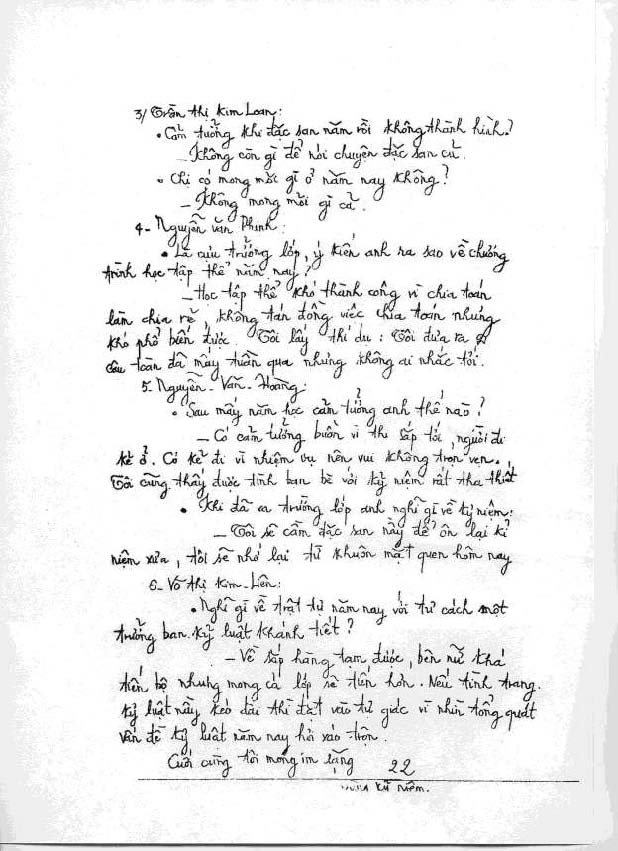 3/ Trần thị Kim Loan:
• Cảm tưởng khi đặc san năm rồi không thành hình?
_ Không còn gì để nói chuyện đặc san cũ.
• Chị có mong mỏi gì ở năm nay không?
_ Không mong mỏi gì cả.
4- Nguyễn văn Phinh:
• Là cựu trưởng lớp, ý kiến anh ra sao về chương
trình học tập thể năm nay?
_ Học tập thể khó thành công vì chia toán
làm chia rẽ, không tán đồng việc chia toán nhưng
khó phổ biến được. Tôi lấy thí dụ: Tôi đưa ra
câu toán đã mấy tuần qua nhưng không ai nhắc tới.
5- Nguyễn - Văn - Hoàng:
• Sau mấy năm học cảm tưởng anh thế nào?
_ Có cảm tưởng buồn vì thi sắp tới, người đi
kẻ ở. Có kẻ đi vì nhiệm vụ nên vui không trọn vẹn.
Tôi cũng thấy được tình bạn bè với kỷ niệm rất tha thiết
• Khi đã ra trường lớp anh nghĩ gì về kỷ niệm:
_ Tôi sẽ cầm đặc san này để ôn lại kỉ
niệm xưa, tôi sẽ nhớ lại từ khuôn mặt quen hôm nay
6- Võ thị Kim - Liên:
• Nghĩ gì về trật tự năm nay với tư cách một
trưởng ban kỷ luật khánh tiết?
_ Về sắp hàng tạm được, bên nữ khá
tiến bộ nhưng mong cả lớp sẽ tiến hơn. Nếu tình trạng
kỷ luật nầy kéo dài thì đặt vào tự giác vì nhìn tổng quát
vấn đề kỷ luật năm nay hơi xáo trộn.
Cuối cùng tôi mong im lặng
22
kỷ niệm.